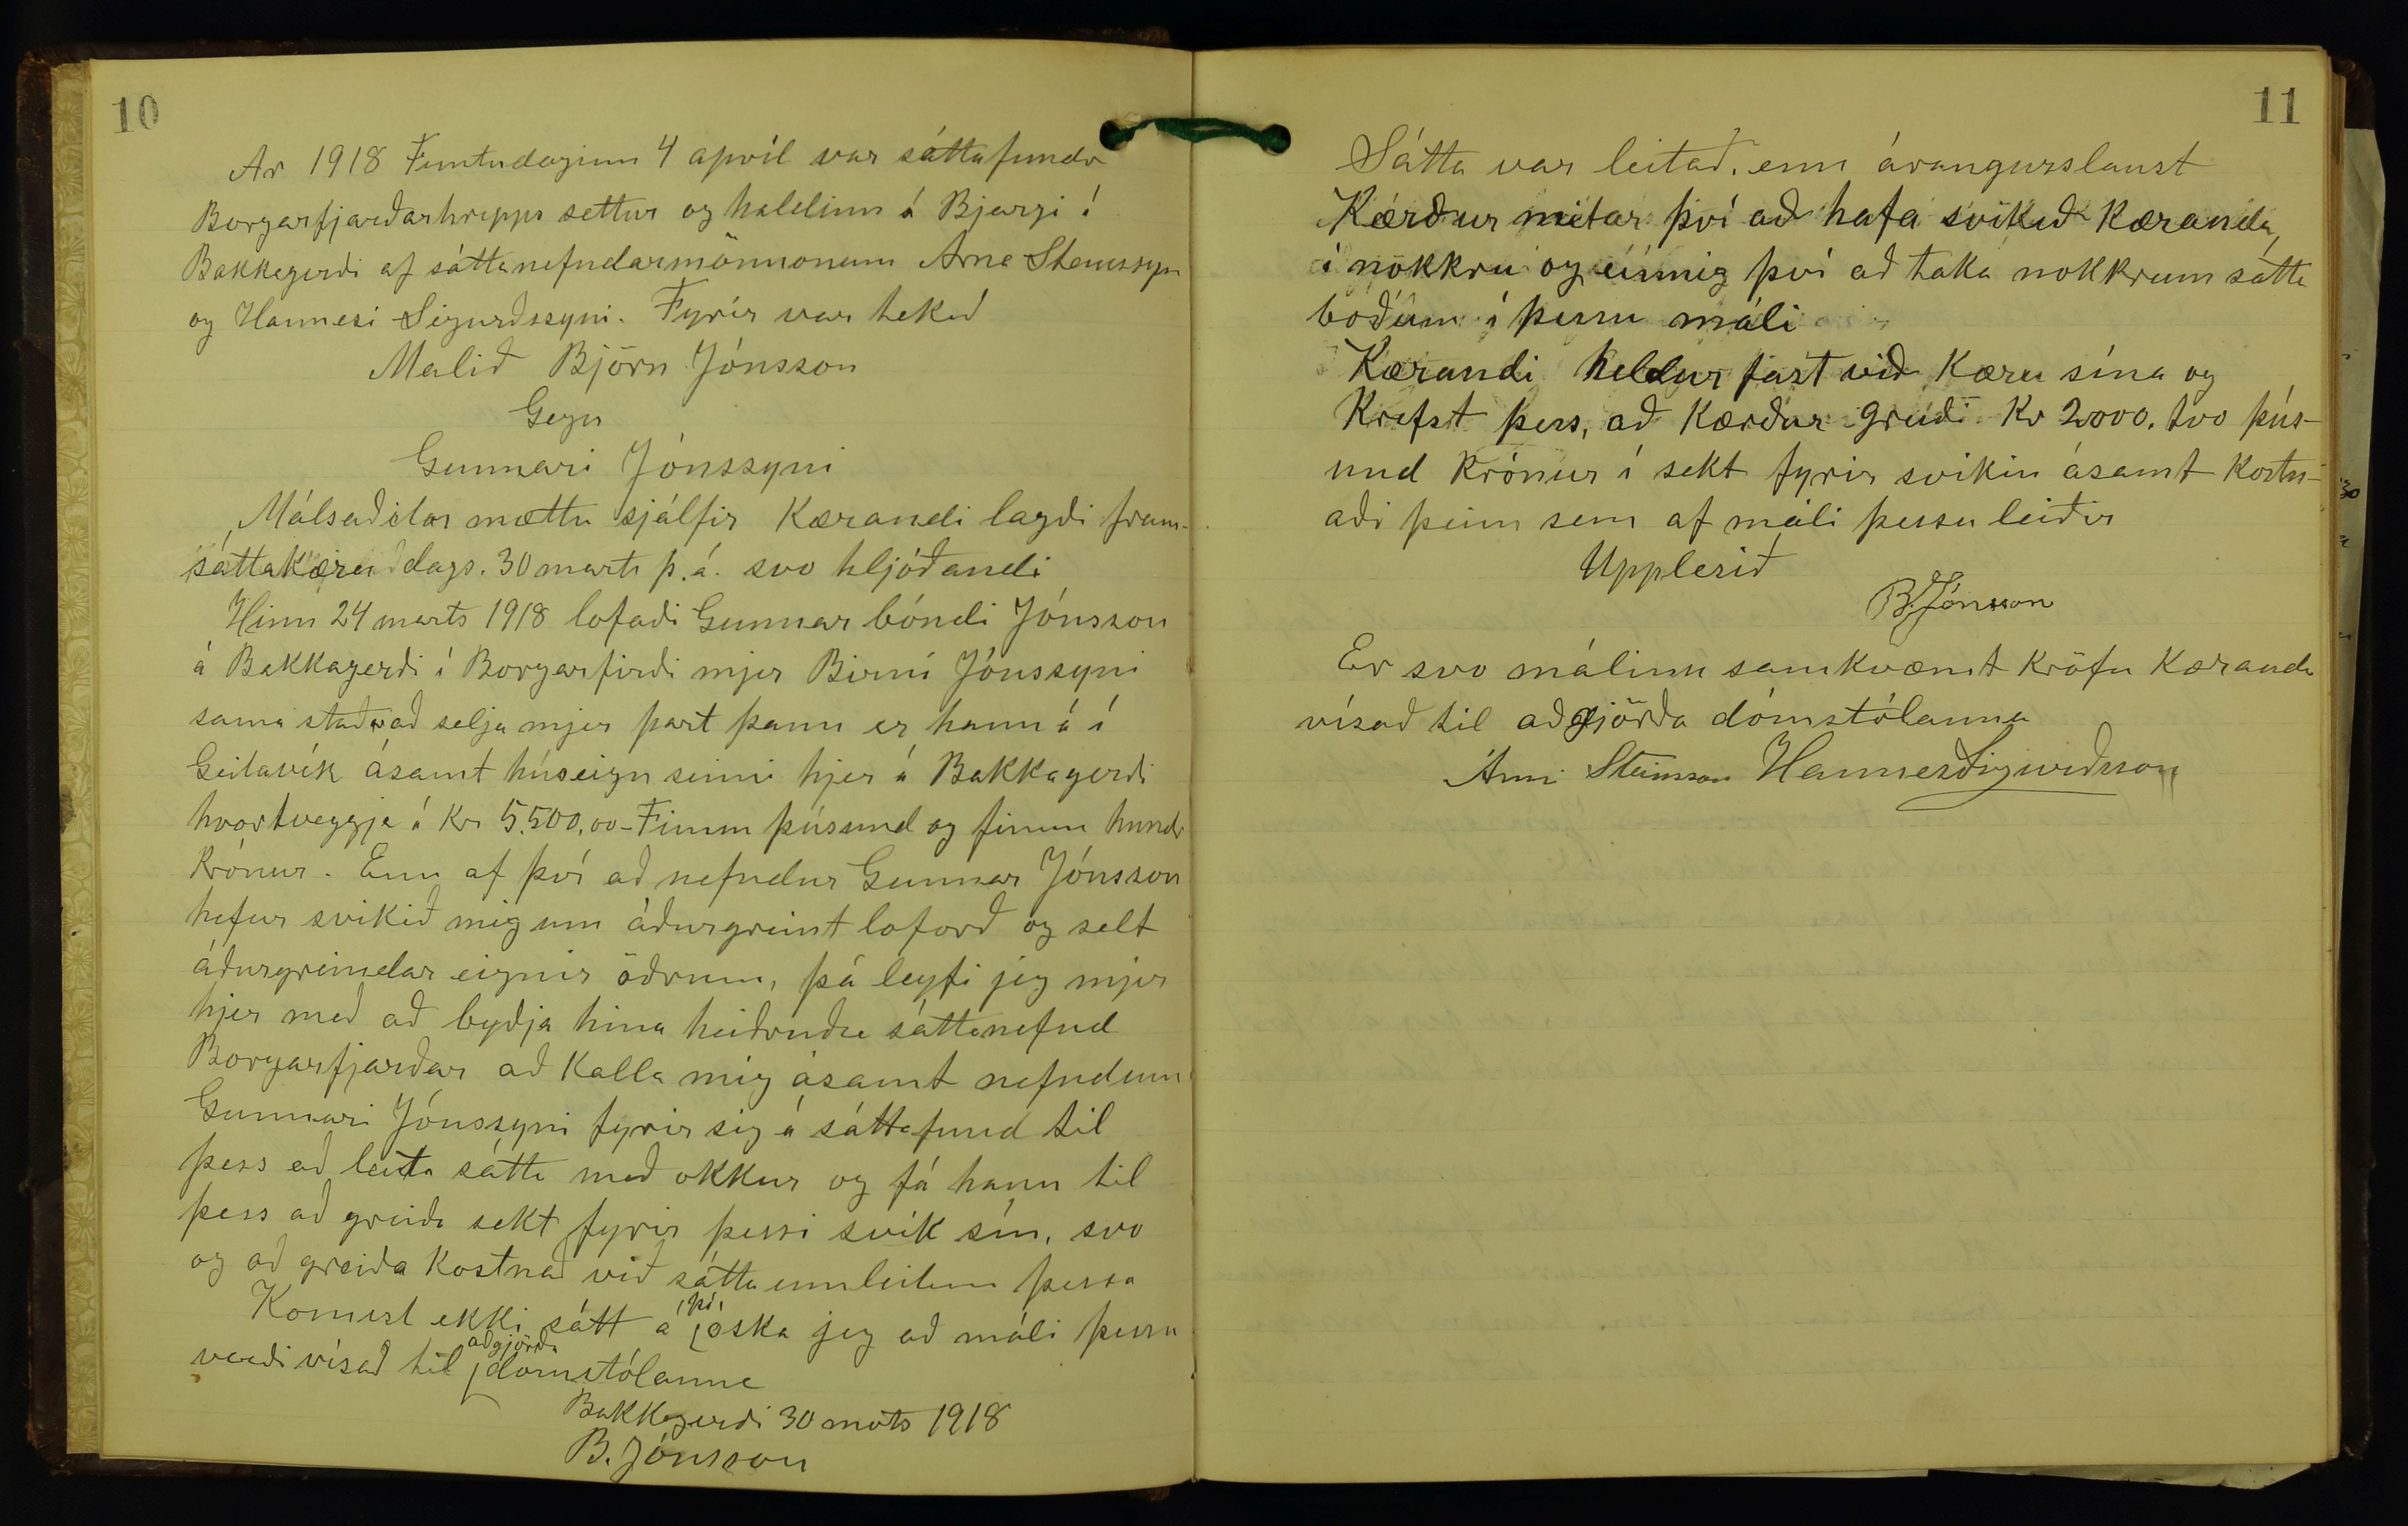 10
Ar 1918 Fimtudaginn 4 apríl var sáttafundr
Borgarfjarðarhrepps settur og haldinn á Bjargi í
Bakkagerði af sáttanefndarmönnonum Arna Steinssyn
og Hannesi Sigurðssyni. Fyrir var tekið
Malið Björn Jónsson
Gegn
Gunnari Jónssyni
Málsaðilar mættu sjálfir Kærandi lagði fram
sáttakæru dags. 30 marts þ.á. svo hljóðandi
Hinn 24 marts 1918 lofaði Gunnar bóndi Jónsson
á Bakkagerði í Borgarfirði mjer Birni Jónssyni
sama staðar að selja mjer part þann er hann á í
Geitavík ásamt húseign sinni hjer á Bakkagerði
hvortveggja á Kr 5.500,00 - Fimm þúsund og fimm hundr
Krónur. Enn af því að nefndur Gunnar Jónsson
hefur svikið mig um áðurgreint loforð og selt
áðurgreindar eignir öðrum, þá leyfi jeg mjer
hjer með að byðja hina heiðruðu sáttanefnd
Borgarfjarðar að Kalla mig ásamt nefndum
Gunnari Jónssyni fyrir sig á sáttafund til
þess að leita sátta með okkur og fá hann til
þess að greiða sekt fyrir þessi svik sín, svo
og að greiða Kostnað við sátta umleitun þessa
Komist ekki sátt á þá óska jeg að máli þessu
verði vísað til aðgjörða domstólanna
Bakkagerði 30 mats 1918
B. Jónsson
11
Sátta var leitað, enn árangurslaust
Kærður neitar því að hafa svikið Kæranda,
í nokkru og einnig því að taka nokkrum sátta
boðum í þessu máli
Kærandi heldur fast við Kæru sína og
Krefst þess, að Kærður greiði Kr 2000. tvo þús-
und Krónur í sekt fyrir svikin ásamt Kostn-
aði þeim sem af máli þessu leiðir
Upplesið
B. Jónsson
Er svo málinu samkvæmt Kröfu Kæranda
vísað til aðgjörða dómstólanna
Árni Steinsson Hannes Sigurðsson